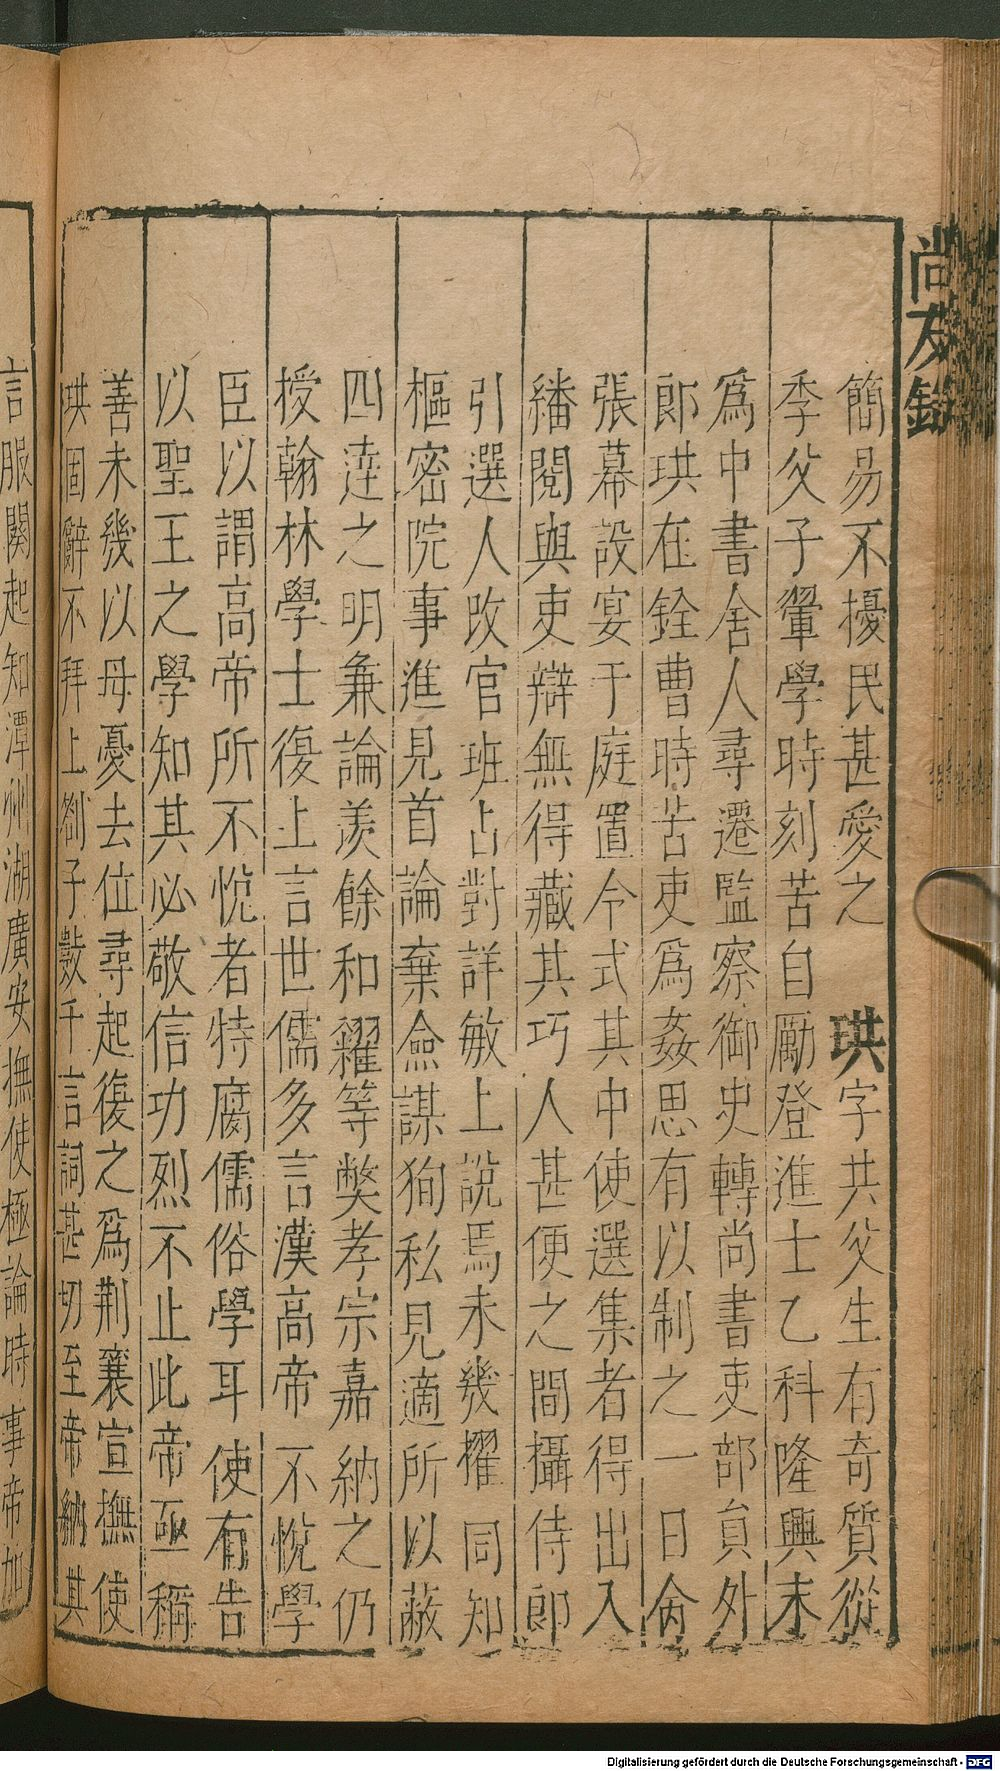 尚友錄
簡易不擾民甚愛之　珙字共父生有奇質從
季父子翬學時刻苦自勵登進士乙科隆興末
爲中書舍人尋遷監察御史轉尚書吏部貟外
郎珙在銓曹時苦吏爲姦思有以制之一日命
張幕設宴于庭置令式其中使選集者得出入
繙閱與吏辯無得藏其巧人甚便之間攝侍郎
引選人改官班占對詳敏上說焉未幾擢同知
樞密院事進見首論棄僉謀狥私見適所以蔽
四達之明兼論羨餘和糴等弊孝宗嘉納之仍
授翰林學士復上言世儒多言漢高帝不悅學
臣以謂高帝所不悅者特腐儒俗學耳使有告
以聖王之學知其必敬信功烈不止此帝亟稱
善未幾以母憂去位尋起復之爲荆襄宣撫使
珙固辭不拜上劄子數千言詞甚切至帝納其
言服闋起知潭州湖廣安撫使極論時事帝加
Digitalisierung gefördert durch die Deutsche Forschungsgemeinschaft - DFG